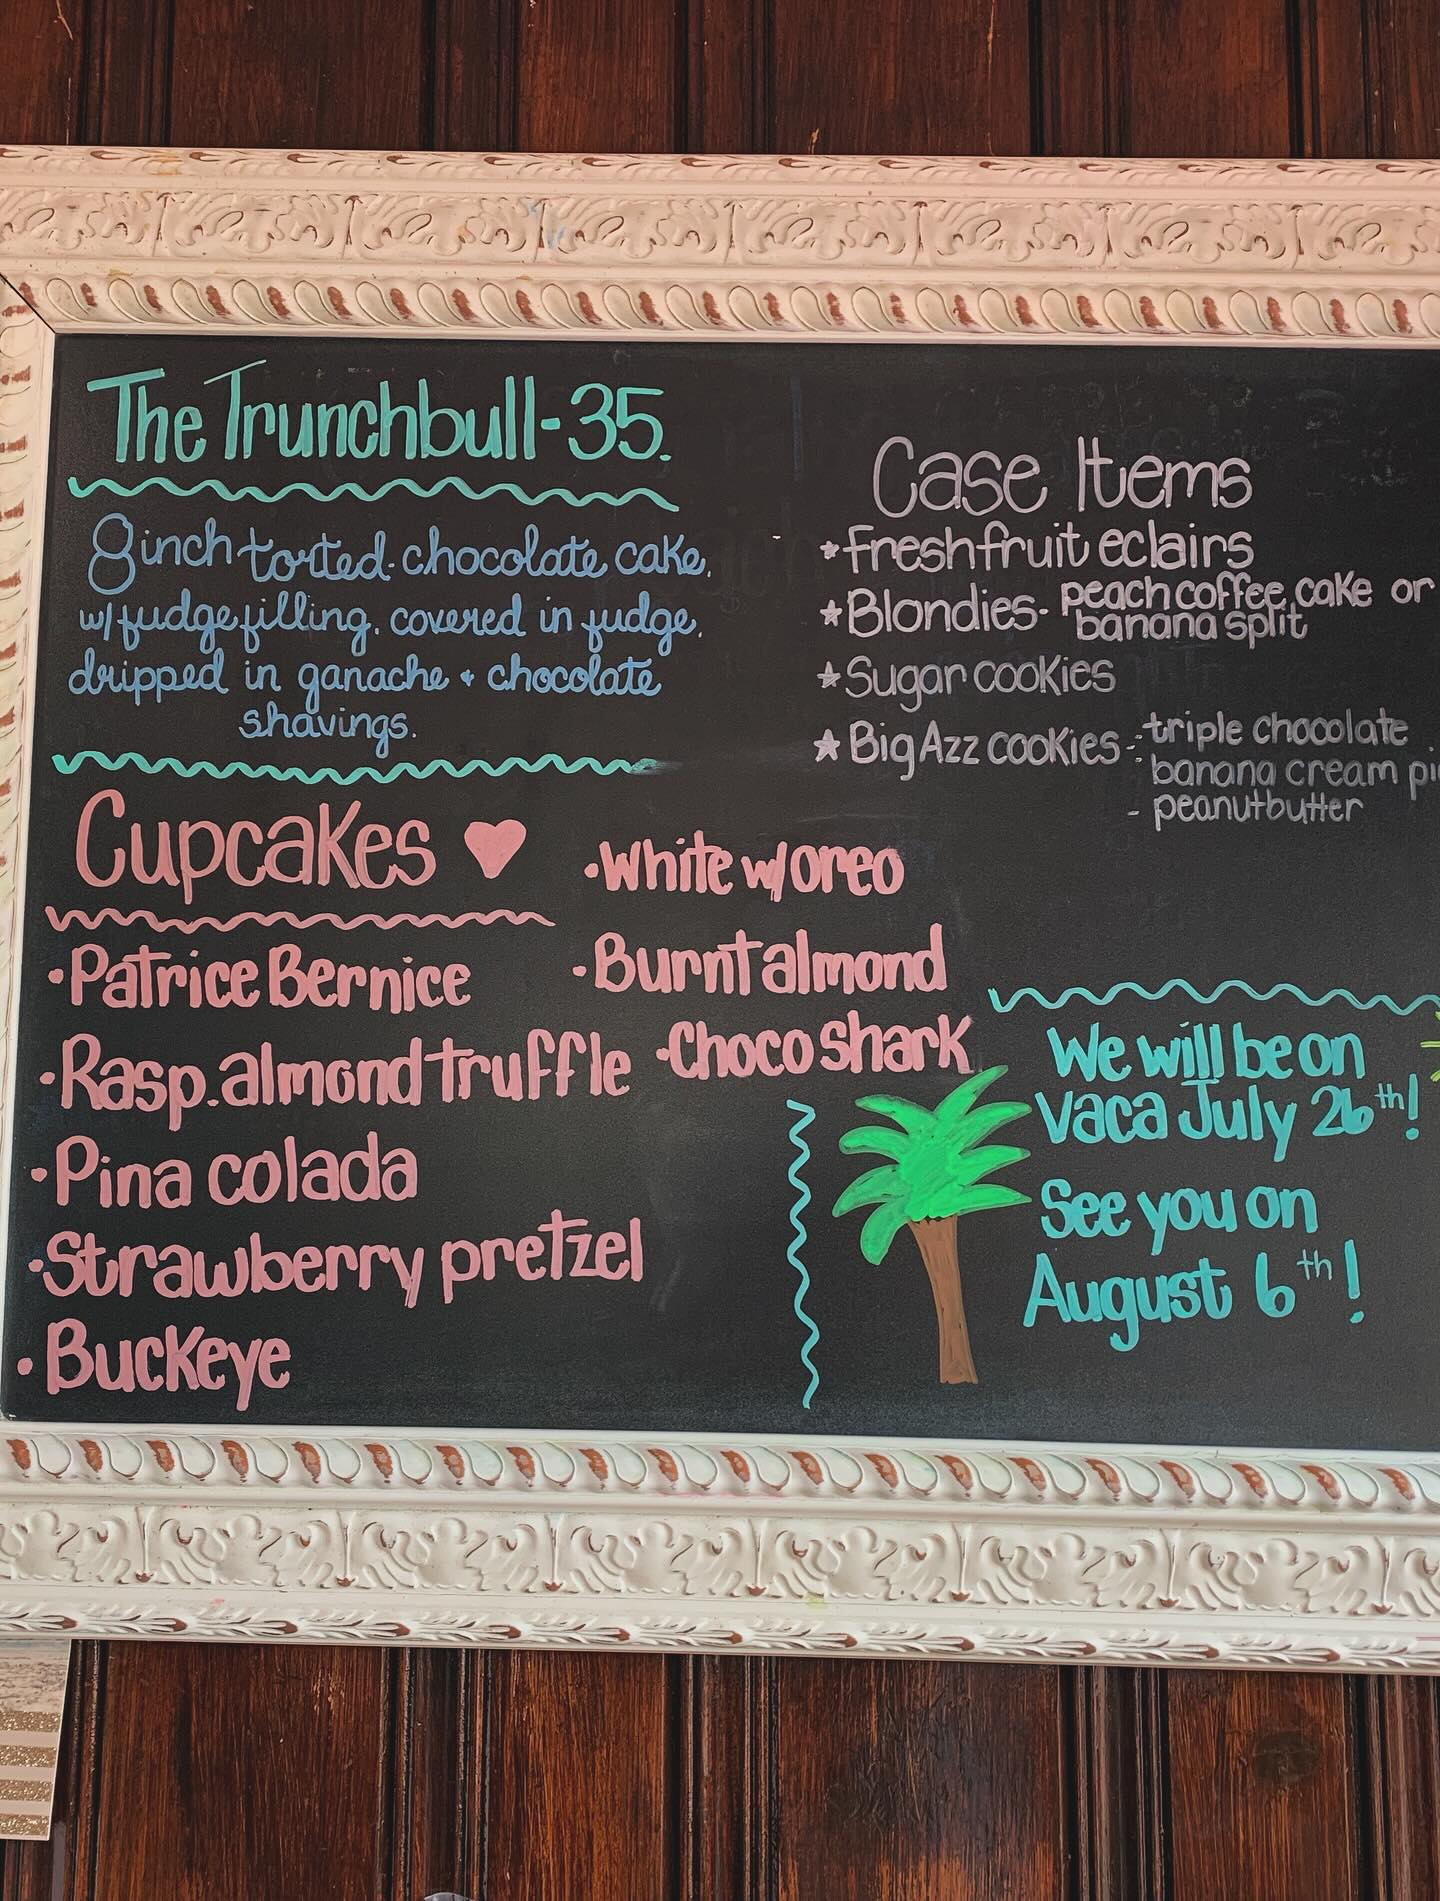 The Trunchbull-35.
8 inch torted chocolate cake,
w/ fudge filling, covered in fudge,
dripped in ganache + chocolate
shavings.
Cupcakes
·Patrice Bernice
·Rasp. almond truffle
·Pina colada
·Strawberry pretzel
·Buckeye
·White w/ oreo
·Burnt almond
·Choco shark
Case Items
*fresh fruit eclairs
*Blondies- peach coffee cake or
banana split
*Sugar cookies
*Big Azz cookies - triple chocolate
- banana cream pi
- peanutbutter
We will be on
vaca July 26th!
See you on
August 6th!